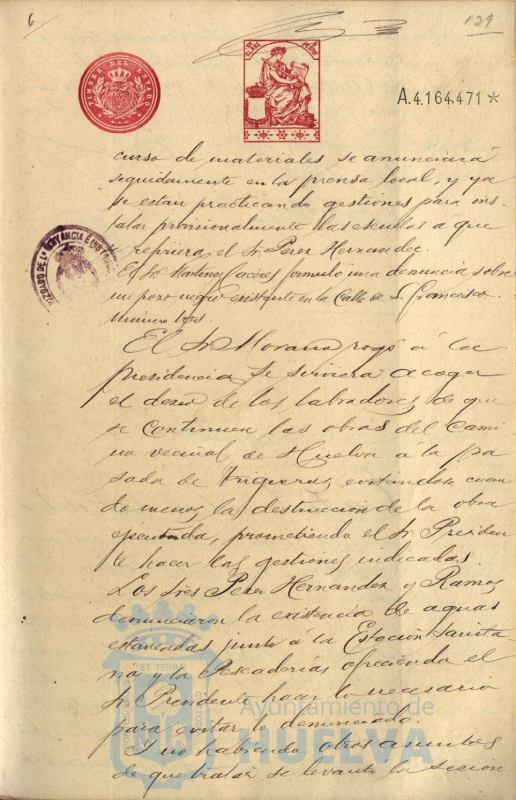 6
129
TIMBRE DEL ESTADO
A.4.164.471*
curso de materiales se anunciará
seguidamente en la prensa local, y ya
se estan practicando gestiones para ins-
talar provisionalmente las escuelas á que
se refiriera el Sr. Perez Hernandez.
El Sr. Martinez Caceres formuló una denuncia sobre
un pozo negro existente en la Calle de S. Francisco
número tres.
El Sr. Morano rogó á la
presidencia se serviera acoger
el deseo de los labradores de que
se continuen las obras del Cami
no vecinal de Huelva á la pa
sada de Trigueros evitandose cuan
do menos la destruccion de la obra
ejecutada, prometiendo el Sr. Presiden
te hacer las gestiones indicadas.
Los Sres Perez Hernandez y Ramos
denunciaron la existencia de aguas
estancadas junto a la Estación Sanita-
ria y la Pescaderias ofreciendo el
Sr. Presidente hacer lo necesario
para evitar lo denunciado.
Y no habiendo otros asuntos
de que tratar se levantó la sesión
Ayuntamiento de
HUELVA